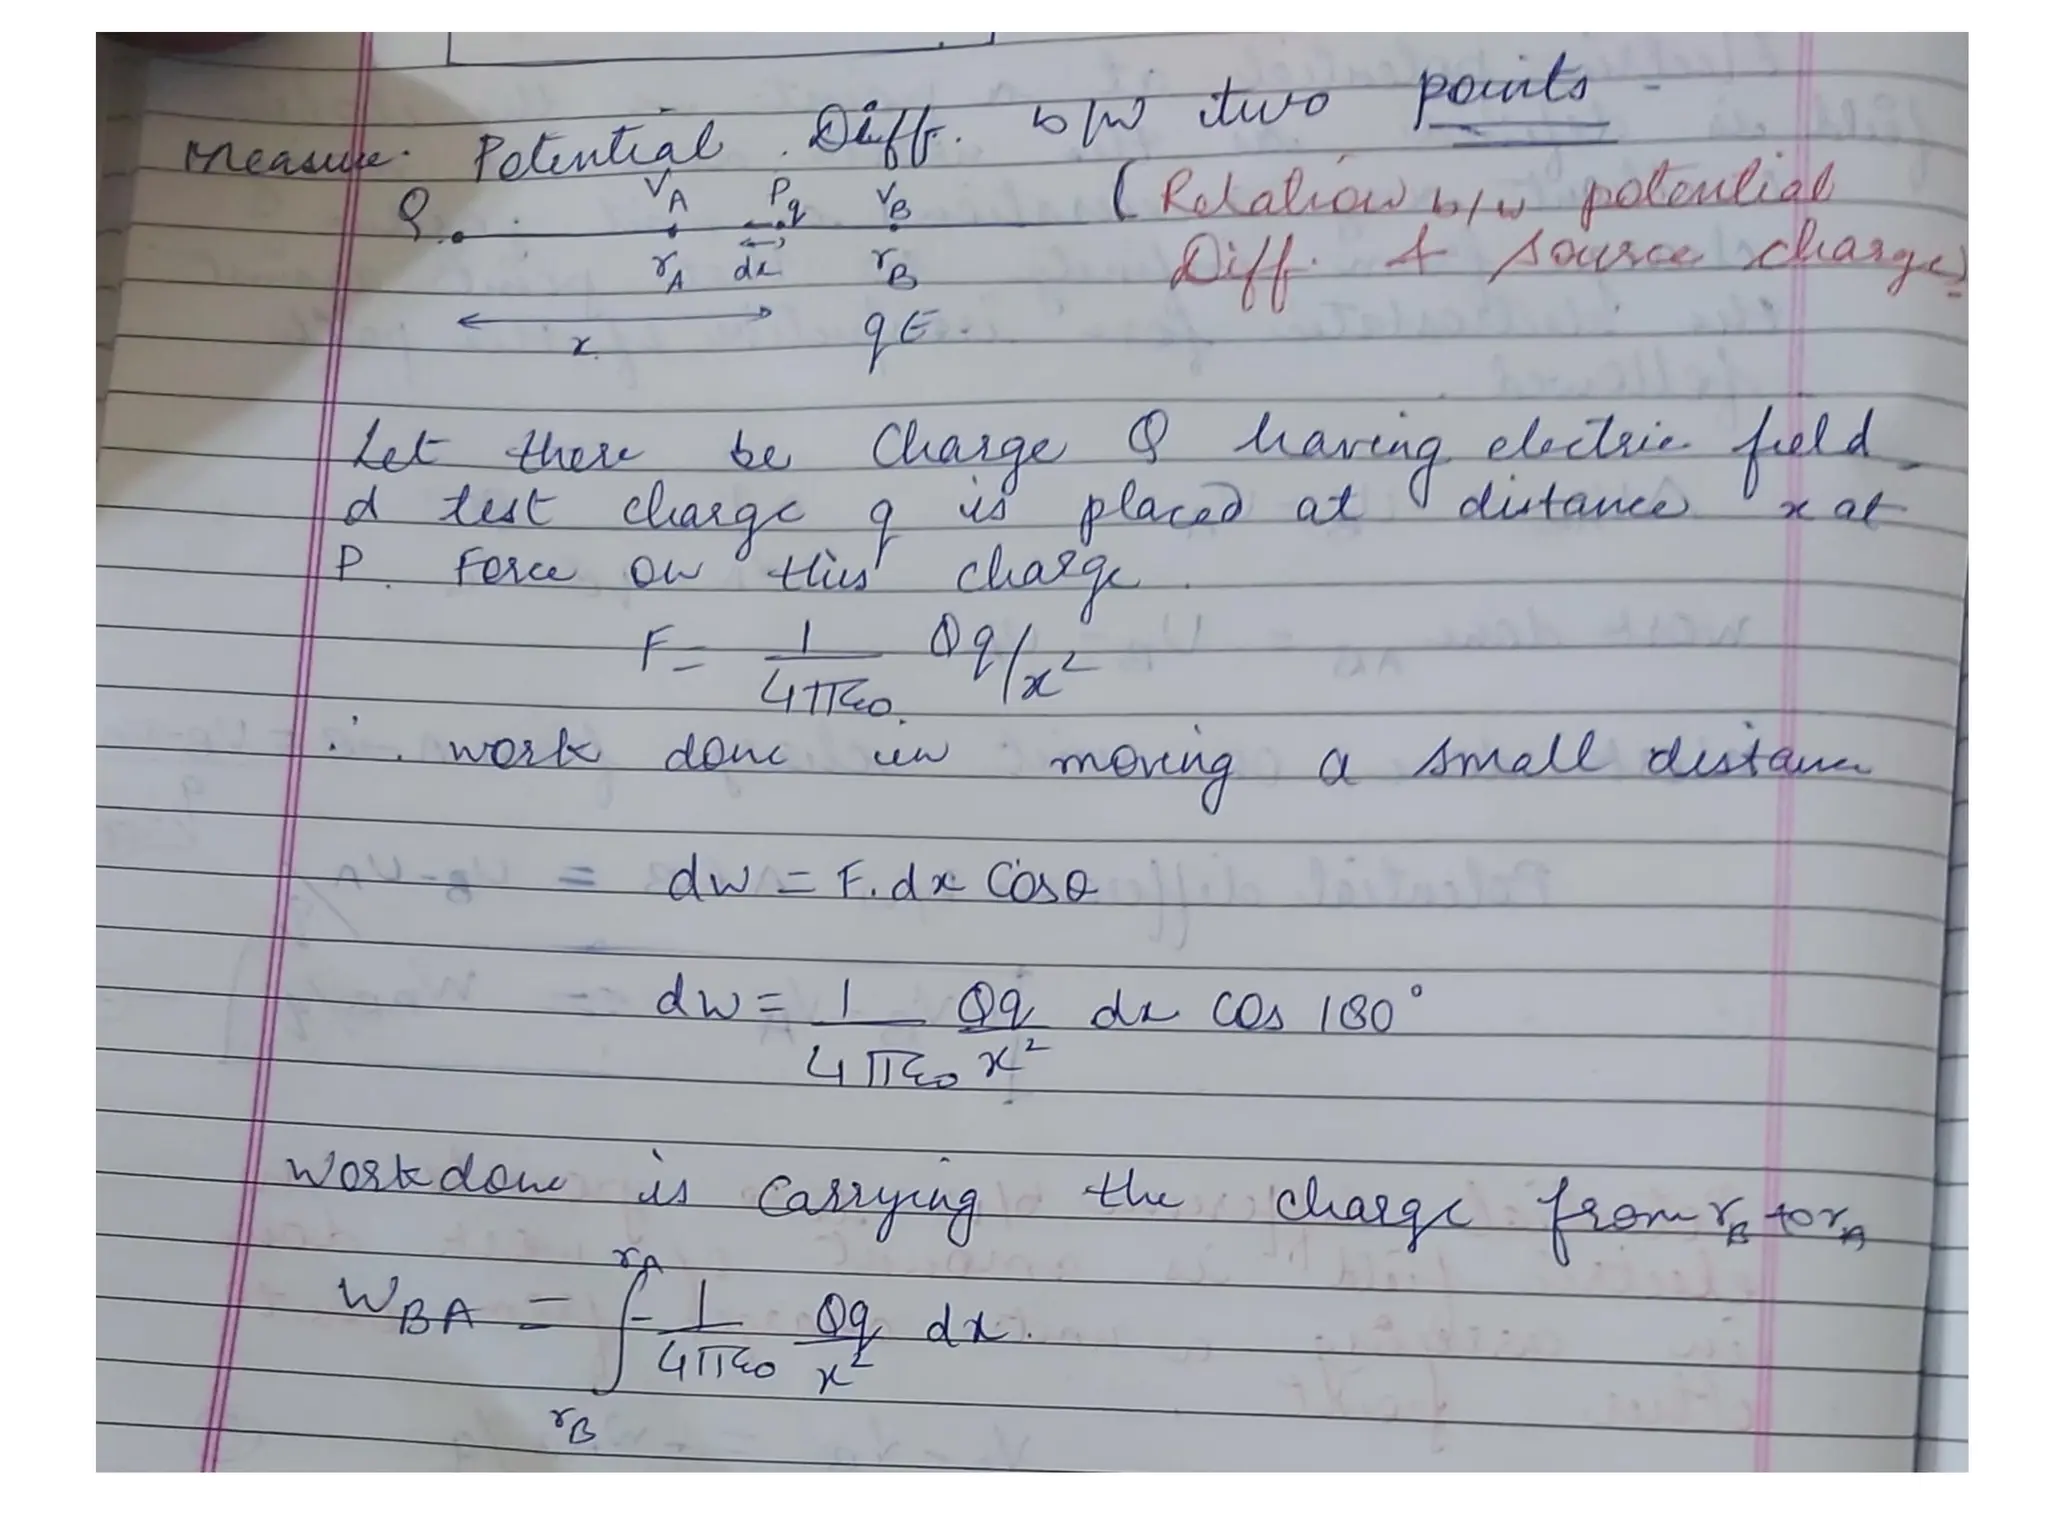 Measure Potential Diff. b/w two points
(Relation b/w potential
Diff. & source charge)
Q VA P q VB
rA dx rB
x qE.
Let there be Charge Q having electric field
& test charge q is placed at distance x at
P. Force on this charge.
F = 1/4πε0. Qq/x²
∴ work done in moving a small distance
dw = F.dx Cosθ
dw = 1/4πε0 Qq/x² dx cos 180°
Workdone is carrying the charge from rB to rA
WBA = ∫ rA rB - 1/4πε0 Qq/x² dx.